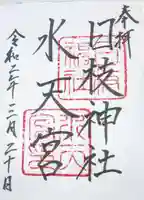 奉拝
日枝神社
水天宮
令和二年十二月二十日